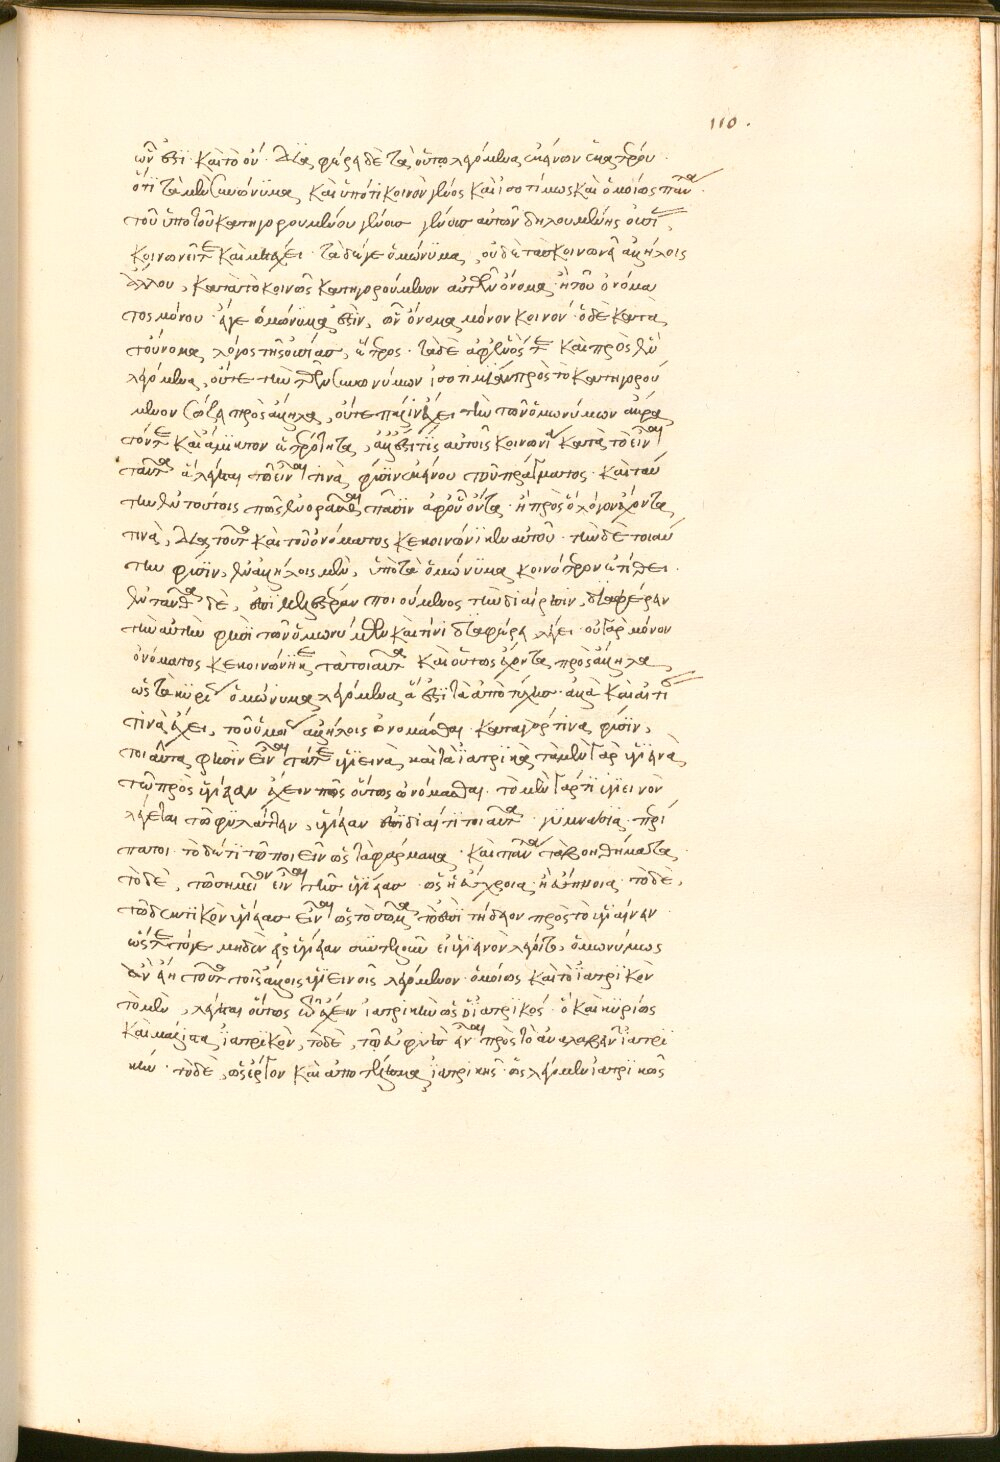 110.
ὧν ἐστὶ καὶ τὸ ὄν. διαφέρει δὲ τὰ οὕτω λεγόμενα ἐκείνων ἑκατέρου.
ὅτι τὰ μὲν συνώνυμα καὶ ὑπό τι κοινὸν γένος καὶ ἰσοτίμως καὶ ὁμοίως πάντα
τοῦ ὑπὸ τοῦ κατηγορουμένου γένους γένους αὐτῶν δηλουμένης οὐσίας
κοινωνεῖ τε καὶ μετέχει. τὰ δέ γε ὁμώνυμα, οὐδὲ τὰς κοινωνεῖ ἀλλήλοις
ἄλλου, κατὰ τὸ κοινῶς κατηγορούμενον αὐτῶν ὄνομα ἢ τοῦ ὀνόμα
τος μόνου. ἅ γε ὁμώνυμά ἐστιν, ὧν ὄνομα μόνον κοινόν. ὁ δὲ κατὰ
τοὔνομα λόγος τῆς οὐσίας, ἕτερος. τὰ δὲ ἀφ' ἑνός τε καὶ πρὸς ἓν
λεγόμενα, οὔτε τὴν τῶν συνωνύμων ἰσοτιμίαν πρὸς τὸ κατηγορού
μενον σώζει πρὸς ἄλληλα, οὔτε πάλιν ἔχει τὴν τῶν ὁμωνύμων ἄκρα
τόν τε καὶ ἄμικτον ἑτερότητα, ἀλλ' ἔστι τίς αὐτοῖς κοινωνία κατὰ τὸ εἶναι
ταῦτα ἃ λέγεται τῷ εἶναι τινὰ φύσιν ἐκείνου τοῦ πράγματος. καὶ ταύ
την ἐν τούτοις πως ἐνορᾶσθαι πᾶσιν ἀφ' οὗ ὄντα ἢ πρὸς ὃ λόγον ἔχοντα
τινὰ, διὰ τοῦτο καὶ τοῦ ὀνόματος κεκοινώνηκεν αὐτοῦ. τὴν δὲ τοιαύ
την φύσιν, ἐν ἄλλοις μὲν, ὑπὸ τὰ ὁμώνυμα κοινότερον ἐτίθει.
ἐνταῦθα δὲ, ἐπὶ ποιούμενος τὴν διαίρεσιν, διαφέρειν
τὴν αὐτὴν φησὶ τῶν ὁμωνύμων καὶ τίνι διαφέρει, λέγει. οὐ γὰρ μόνον
ὀνόματος κεκοινώνηκε τὰ τοιαῦτα καὶ οὕτως ἔχοντα πρὸς ἄλληλα
ὡς τὰ κυρίως ὁμώνυμα λεγόμενα ἅ ἐστι τὰ ἀπὸ τύχης. ἀλλὰ καὶ αἰτίαν
τινὰ ἔχει, τοῦ ὁμοίως ἀλλήλοις ὠνομάσθαι. κατηγορεῖ τινα φύσιν,
τοιαύτα φύσιν εἶναι τά τε ὑγιεινὰ καὶ τὰ ἰατρικὰ τὰ μὲν γὰρ ὑγιεινὰ
τῷ πρὸς ὑγίειαν ἔχειν πως οὕτως ὠνόμασται. τὸ μὲν γάρ τι ὑγιεινὸν
λέγεται τῷ φυλάττειν, ὑγίειαν ἐπὶ διαίτῃ τοιαῦτα γυμνασία, περί
πατοι. τὸ δέ τι τῷ ποιεῖν ὡς τὰ φάρμακα καὶ πάντα τὰ βοηθήματα
τὸ δὲ, τῷ σημεῖον εἶναι τῆς ὑγιείας ὡς ἡ εὔχροια, ἡ εὔπνοια. τὸ δὲ,
τῷ δεκτικὸν ὑγιείας εἶναι ὡς τὸ σῶμα τὸ ἐπιτήδειον πρὸς τὸ ὑγιαίνειν
ὡς τό τε τό γε μηδὲν εἰς ὑγίειαν συντελοῦν εἰ ὑγιεινὸν λέγοιτο, ὁμωνύμως
ἂν εἴη τοῦτο τοῖς ἄλλοις ὑγιεινοῖς λεγόμενον. ὁμοίως καὶ τὸ ἰατρικὸν
τὸ μὲν, λέγεται οὕτως τῷ ἔχειν ἰατρικὴν ὡς ὁ ἰατρικός. ὃ καὶ κυρίως
καὶ μάλιστα ἰατρικὸν, τὸ δὲ, τῷ εὐφυὲς εἶναι πρὸς τὸ ἀναλαβεῖν ἰατρι
κήν. τὸ δὲ, ὡς ἔργον καὶ ἀποτέλεσμα ἰατρικῆς. ὡς λέγομεν ἰατρικῶς